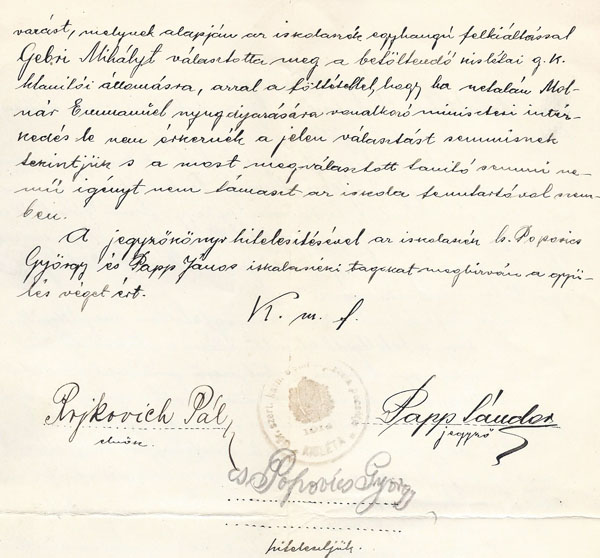 varást, melynek alapján az iskolaszék egyhangú felkiáltással
Gebri Mihályt választotta meg a betöltendő kislétai g. k.
ktanitói állomásra, azzal a föltétellel, hogy ha netalán Mol-
nár Emmanuel nyugdijazására vonatkozó miniszteri intéz-
kedés le nem érkeznék a jelen választást semmisnek
tekintjük s a most megválasztott tanitó semmi ne-
mű igényt nem támaszt az iskola fenntartóval szem-
ben.
A jegyzőkönyv hitelesitésével az iskolaszék cs. Popovics
György és Papp János iskolaszéki tagokat megbizván a gyü-
lés véget ért.
K. m. f.
Rojkovich Pál
elnök
Papp Sándor
jegyző
cs Popovics György
hitelesitjük.